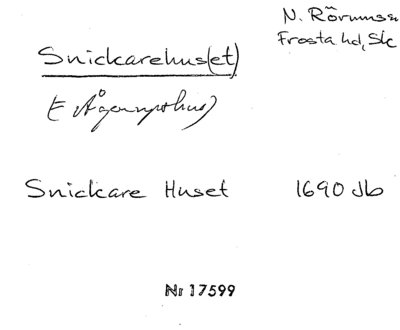 N. Rörums sn
Frosta hd, Sk
Snickarehus(et)
Snickare Huset 1690 Jb
Nr 17599